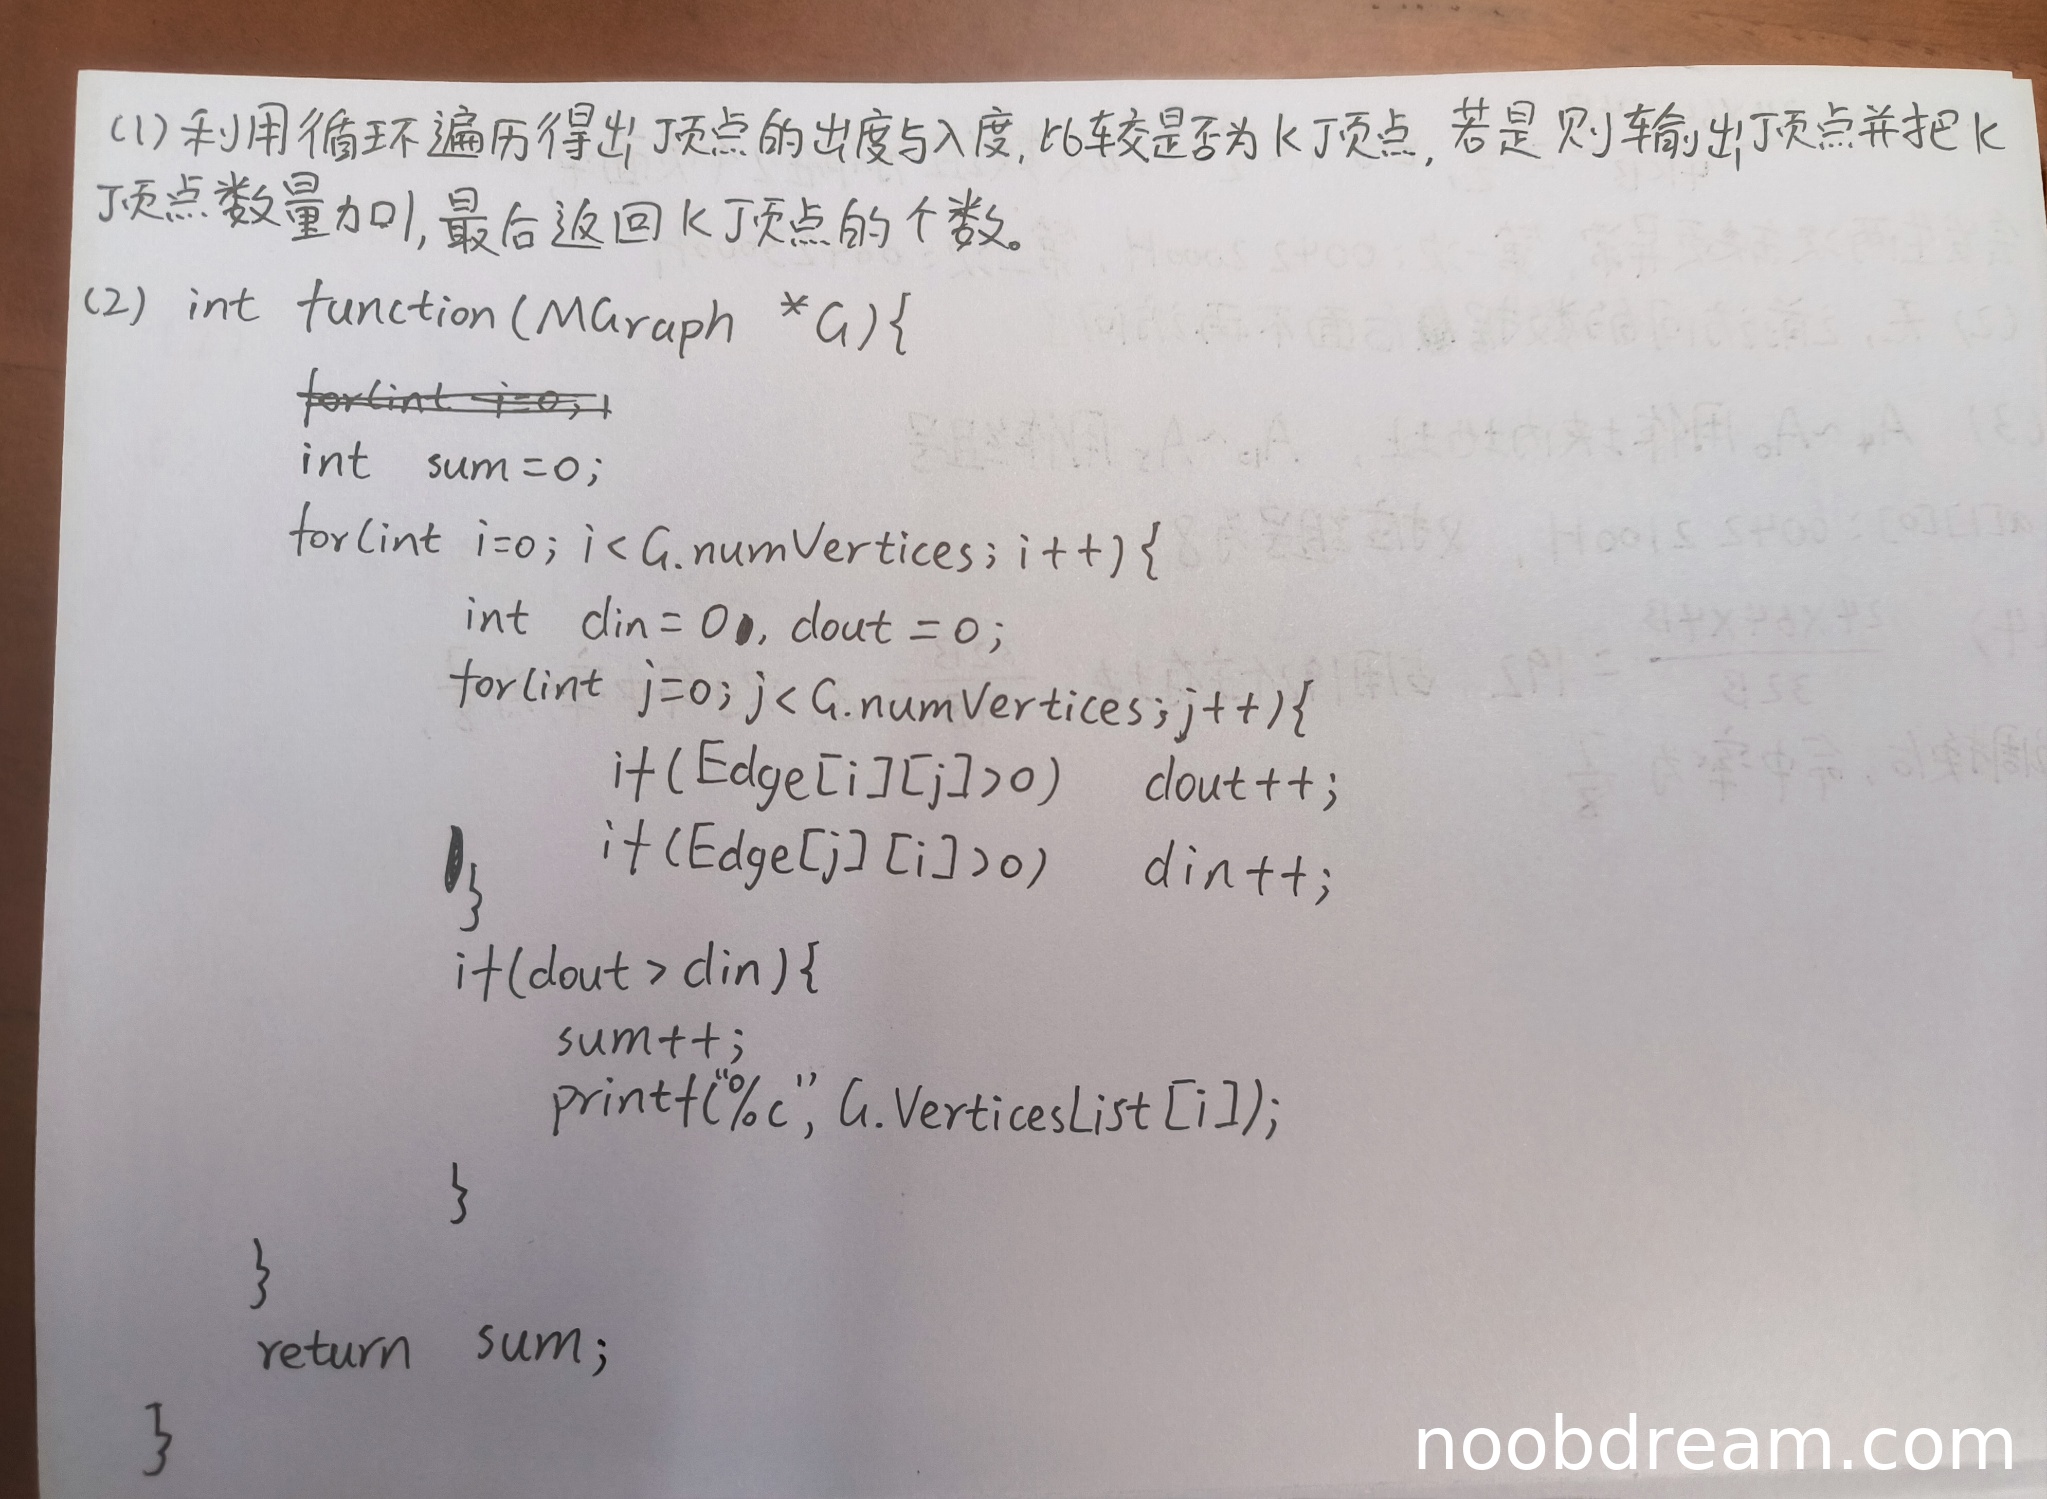 (1)利用循环遍历得出顶点的出度与入度,比较是否为K顶点,若是则输出顶点并把K
顶点数量加1,最后返回K顶点的个数。
(2) int function(MGraph *G){
for(int i=0;
int sum=0;
for(int i=0; i<G.numVertices; i++){
int din=0, dout=0;
for(int j=0; j<G.numVertices; j++){
if(Edge[i][j]>0) dout++;
if(Edge[j][i]>0) din++;
}
if(dout>din){
sum++;
printf("%c", G.VerticesList[i]);
}
}
return sum;
}
noobdream.com